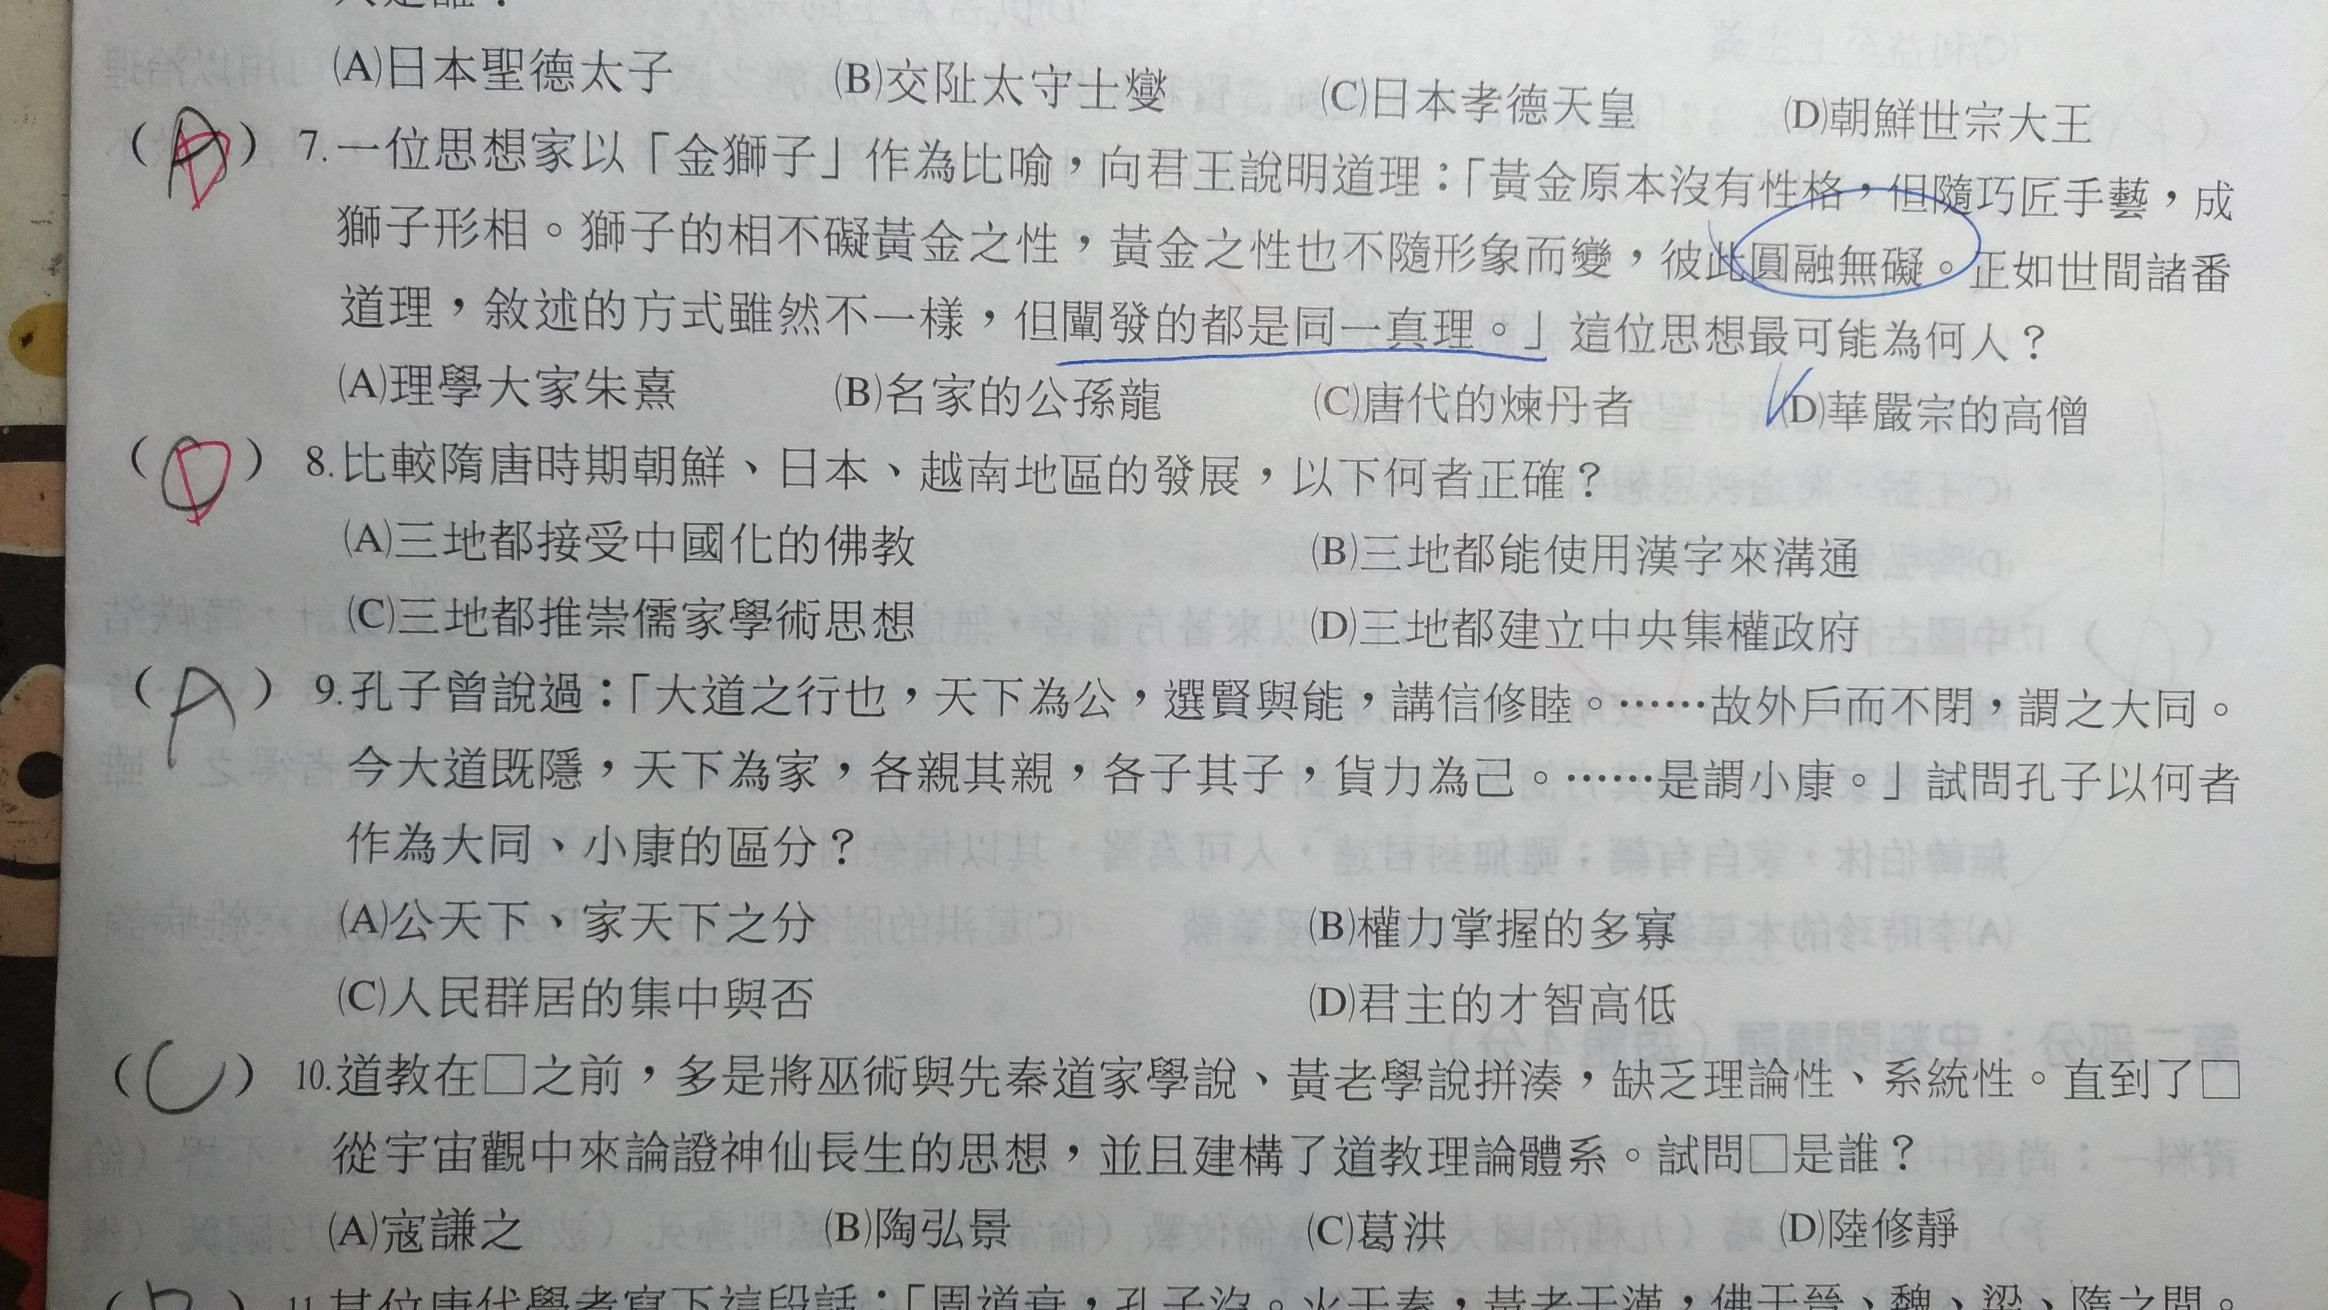 (A)日本聖德太子 (B)交阯太守士燮 (C)日本孝德天皇 (D)朝鮮世宗大王
(D) 7.一位思想家以「金獅子」作為比喻，向君王說明道理：「黃金原本沒有性格，但隨巧匠手藝，成
獅子形相。獅子的相不礙黃金之性，黃金之性也不隨形象而變，彼此圓融無礙。正如世間諸番
道理，敘述的方式雖然不一樣，但闡發的都是同一真理。」這位思想最可能為何人？
(A)理學大家朱熹 (B)名家的公孫龍 (C)唐代的煉丹者 (D)華嚴宗的高僧
(D) 8.比較隋唐時期朝鮮、日本、越南地區的發展，以下何者正確？
(A)三地都接受中國化的佛教 (B)三地都能使用漢字來溝通
(C)三地都推崇儒家學術思想 (D)三地都建立中央集權政府
(A) 9.孔子曾說過：「大道之行也，天下為公，選賢與能，講信修睦。……故外戶而不閉，謂之大同。
今大道既隱，天下為家，各親其親，各子其子，貨力為己。……是謂小康。」試問孔子以何者
作為大同、小康的區分？
(A)公天下、家天下之分 (B)權力掌握的多寡
(C)人民群居的集中與否 (D)君主的才智高低
(C) 10.道教在□之前，多是將巫術與先秦道家學說、黃老學說拼湊，缺乏理論性、系統性。直到了□
從宇宙觀中來論證神仙長生的思想，並且建構了道教理論體系。試問□是誰？
(A)寇謙之 (B)陶弘景 (C)葛洪 (D)陸修靜
11.某位唐代學者寫下這段話：「周道衰，孔子沒。火于秦，黃老于漢，佛于晉、魏、梁、隋之間。